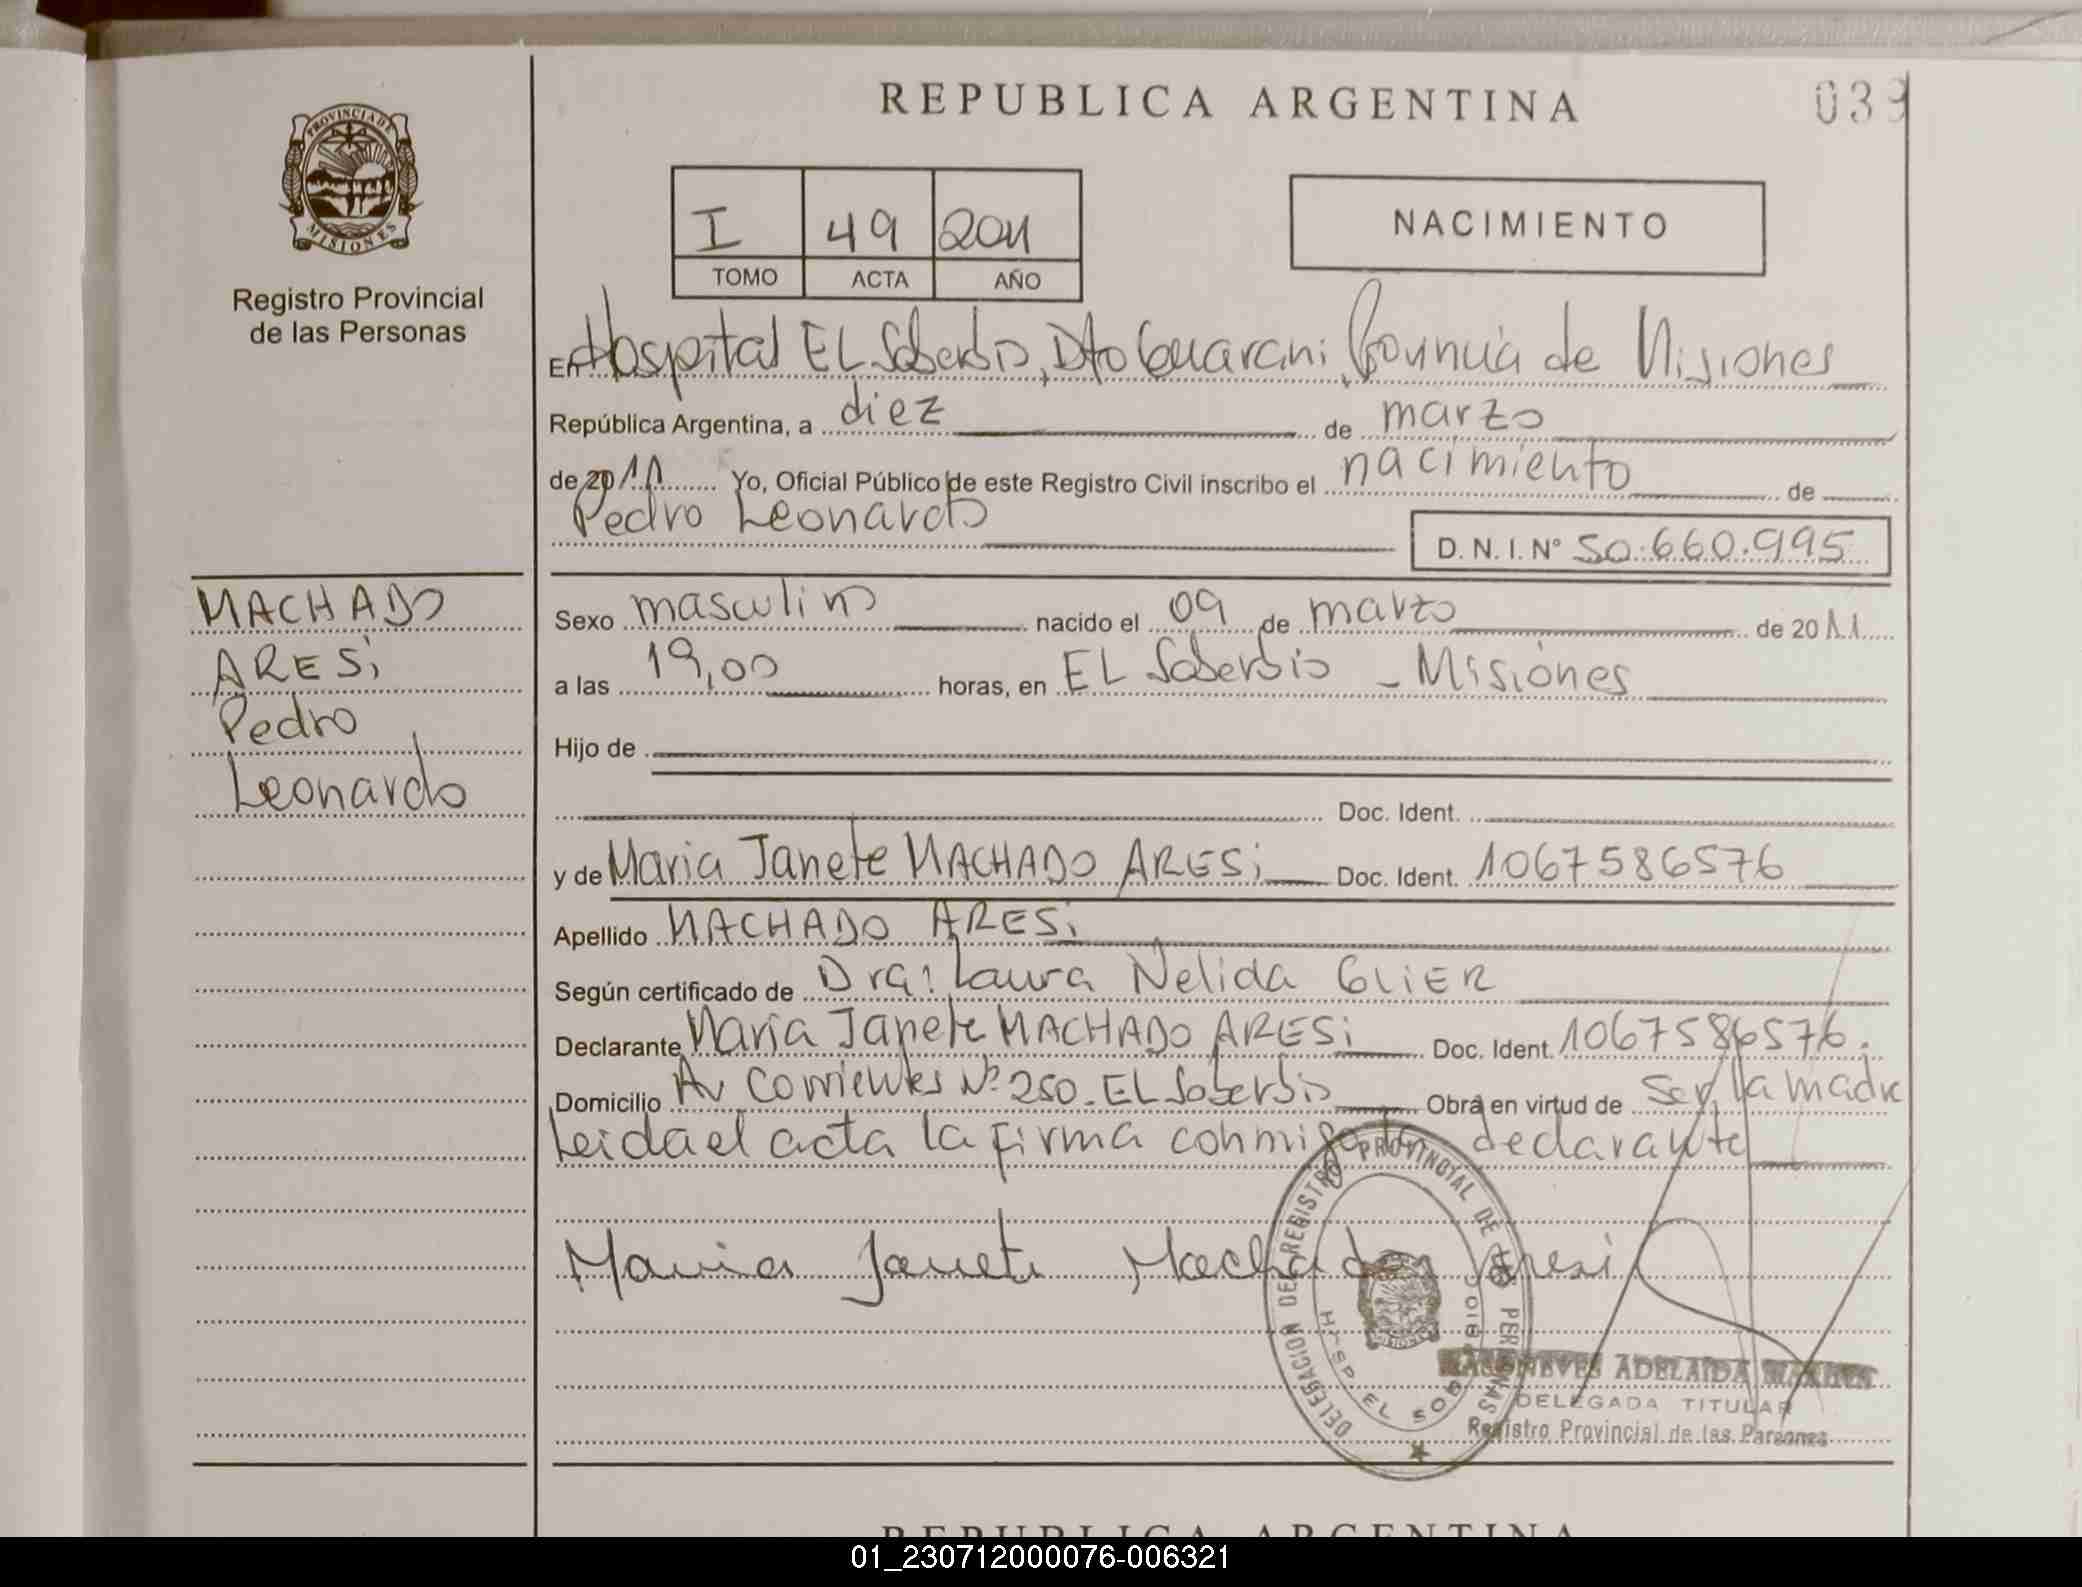 REPUBLICA ARGENTINA
039
PROVINCIA DE
MISIONES
Registro Provincial
de las Personas
I 49 2011
TOMO ACTA AÑO
NACIMIENTO
En Hospital EL Soberbio, Dto Guarani, Provincia de Misiones
República Argentina, a diez de marzo
de 2011 Yo, Oficial Público de este Registro Civil inscribo el nacimiento de
Pedro Leonardo
D. N. I. N° 50.660.995
MACHADO
ARESi
Pedro
Leonardo
Sexo masculino nacido el 09 de marzo de 2011
a las 19,00 horas, en EL Soberbio - Misiones
Hijo de
Doc. Ident.
y de Maria Janete MACHADO ARESi Doc. Ident. 1067586576
Apellido MACHADO ARESi
Según certificado de Dra: Laura Nelida GLiER
Declarante Maria Janete MACHADO ARESi Doc. Ident. 1067586576.
Domicilio Av Corrientes Nº 250. EL Soberbio Obra en virtud de ser la madre
Leida el acta la firma conmigo la declarante
Maria Janete Machado Aresi
DELEGACION DE REGISTRO PROVINCIAL DE LAS PERSONAS
HOSP EL SOBERBIO
NEVES ADELAIDA
DELEGADA TITULAR
Registro Provincial de las Personas
REPUBLICA ARGENTINA
01_230712000076-006321